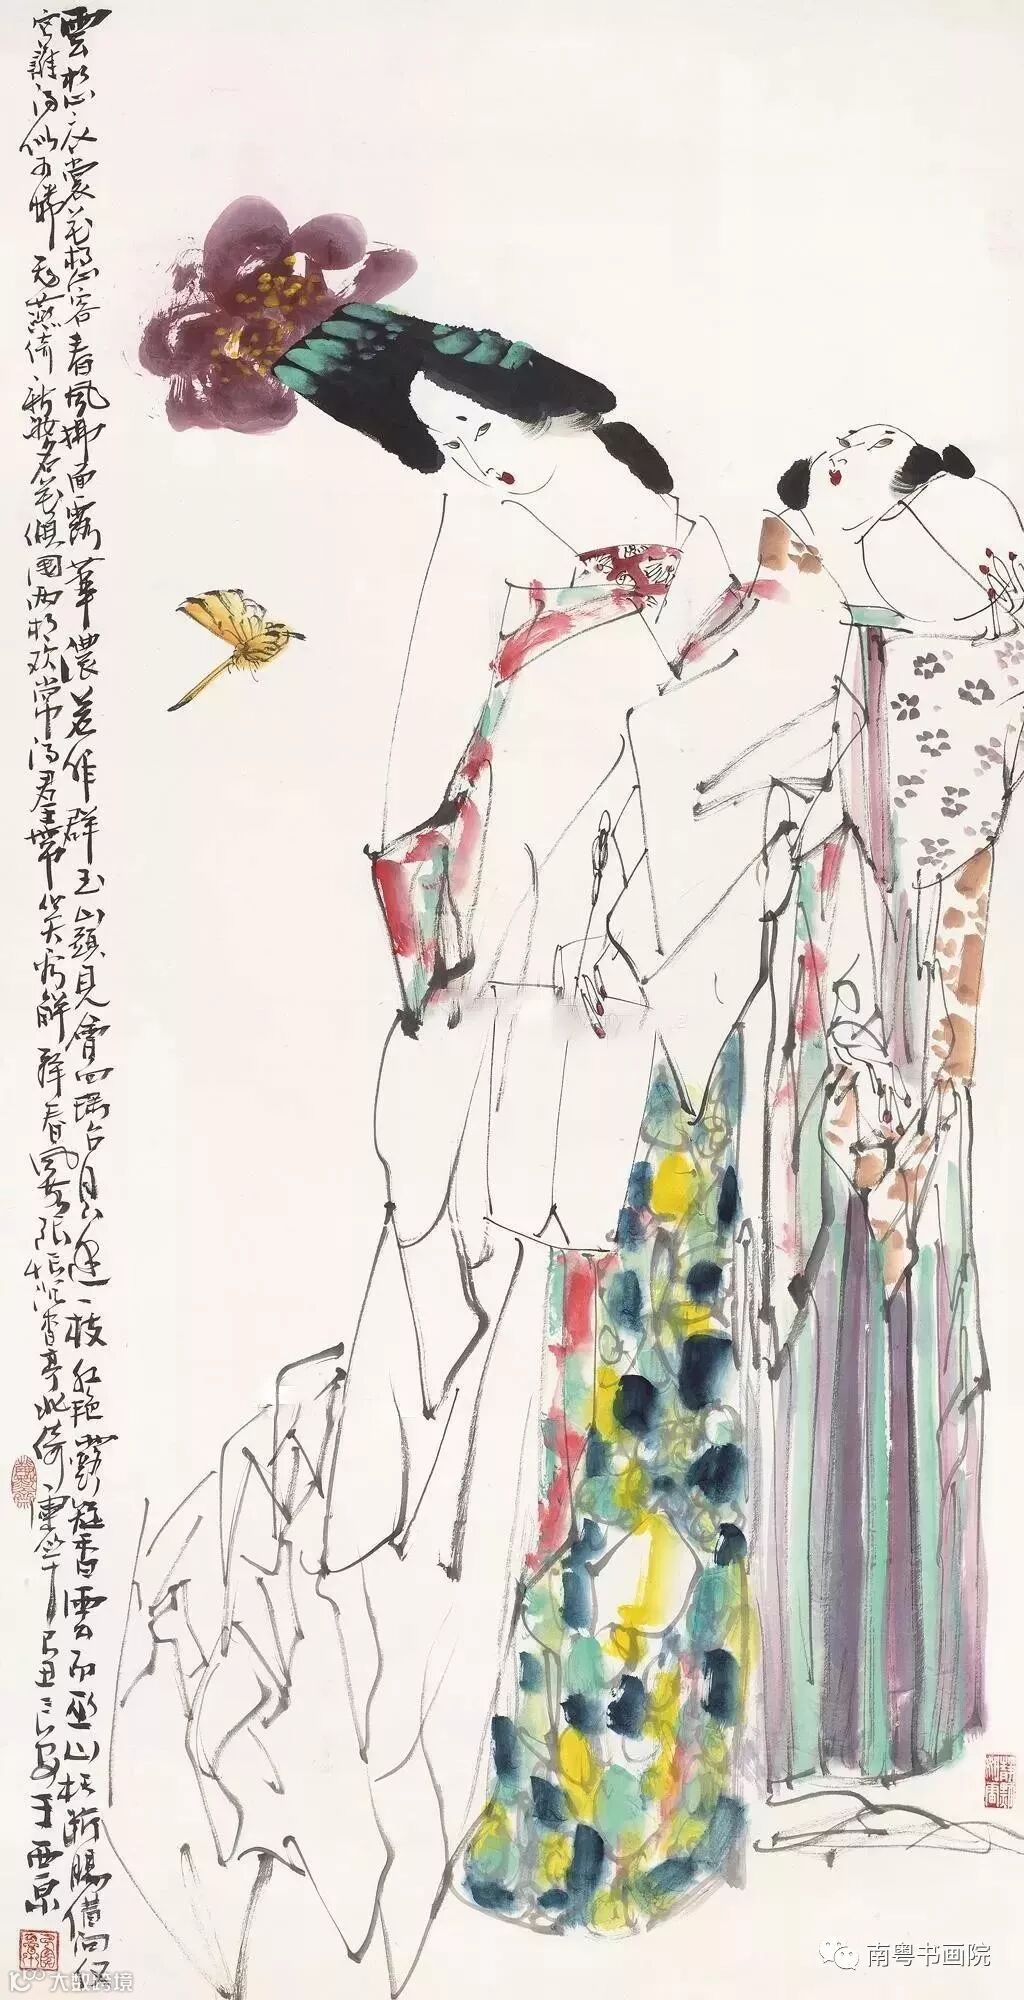 雲想衣裳花想容春風拂面露華濃若作群玉山頭見會向瑶台月下逢一枝红艳露凝香雲雨巫山枉断腸借问汉
宫誰得似可憐飛燕倚新妝名花傾國两相欢常得君王带笑看解釋春風無限恨沉香亭北倚闌干己丑長安王西京
南粤书画院
大数跨境